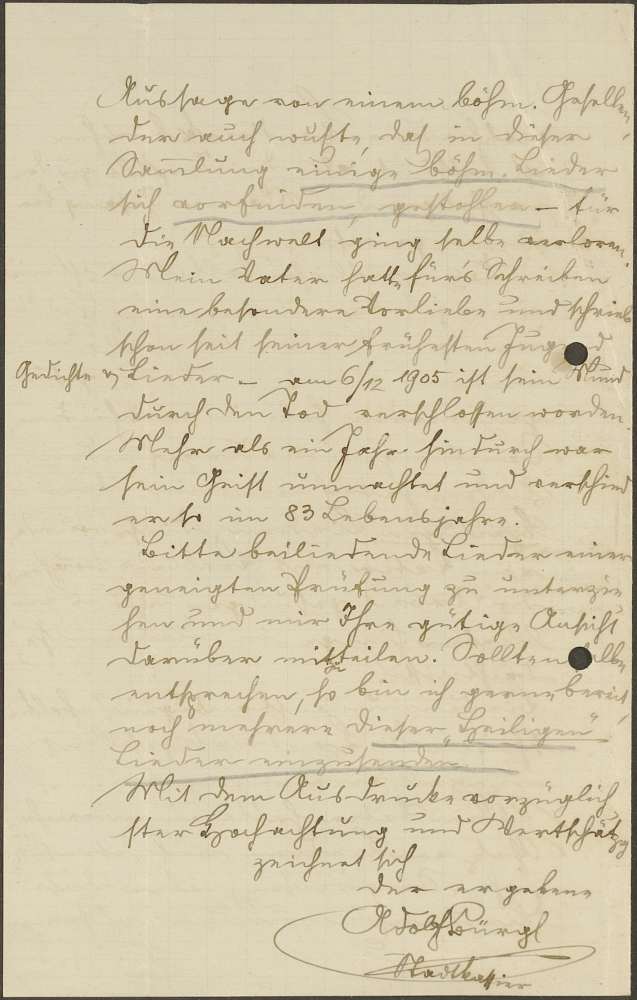 Aussage von einem böhm. Gesellen,
der auch wußte, daß in dieser
Sammlung einige böhm. Lieder
sich vorfinden, gestohlen – für
die Nachwelt ging selbe verloren.
Mein Vater hatte für's Schreiben
eine besondere Vorliebe und schrieb
schon seit seiner frühesten Jugend
Gedichte u Lieder – am 6/12 1905 ist sein Mund
durch den Tod verschlossen worden.
Mehr als ein Jahr hindurch war
sein Geist umnachtet und verschied
er so im 83 Lebensjahre.
Bitte beiliegende Lieder einer
geneigten Prüfung zu unterzie
hen und mir Ihre gütige Ansicht
darüber mitzuteilen. Sollten selbe
entsprechen, so bin ich gerne bereit,
noch mehrere dieser „Heiligen"
Lieder einzusenden.
Mit dem Ausdrucke vorzüglich
ster Hochachtung und Wertschätzg
zeichnet sich
der ergebene
Adolf Bürgl
Stadtkassier